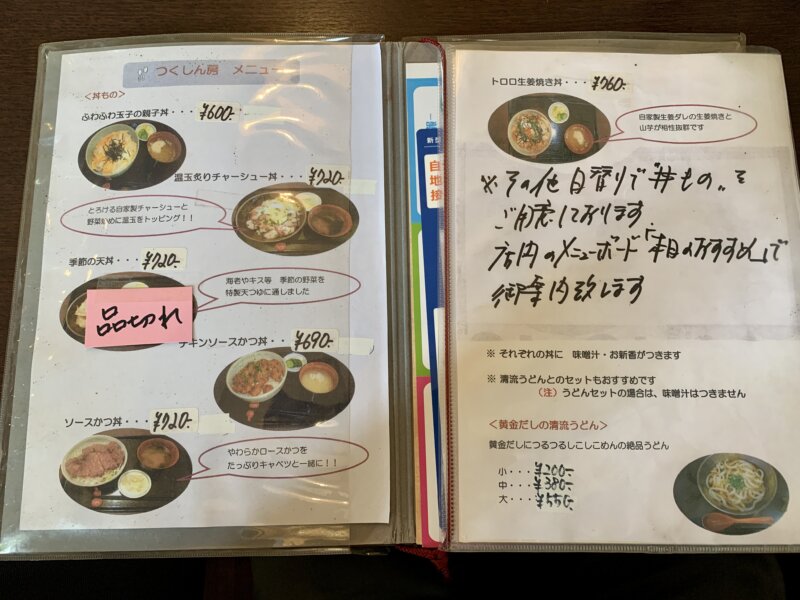 つくしん房 メニュー
<丼もの>
ふわふわ玉子の親子丼・・・¥600-
温玉炙りチャーシュー丼・・・¥720-
とろける自家製チャーシューと
野菜炒めに温玉をトッピング！！
季節の天丼・・・¥720-
海老やキス等 季節の野菜を
特製天つゆに通しました
品切れ
チキンソースかつ丼・・¥690-
ソースかつ丼・・¥720-
やわらかロースかつを
たっぷりキャベツと一緒に！！
トロロ生姜焼き丼・・・¥760-
自家製生姜ダレの生姜焼きと
山芋が相性抜群です
※その他日替りで"丼もの"を
ご用意しております.
店内のメニューボード「本日のおすすめ」で
御案内致します
※ それぞれの丼に 味噌汁・お新香がつきます
※ 清流うどんとのセットもおすすめです
（注）うどんセットの場合は、味噌汁はつきません
<黄金だしの清流うどん>
黄金だしにつるつるしこしこめんの絶品うどん
小・・・¥200-
中・・・¥380-
大・・・¥550-